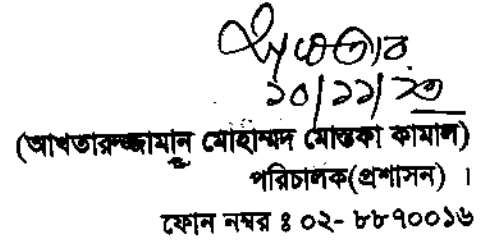 ১০/১১/২০
(আখতারুজ্জামান মোহাম্মদ মোস্তফা কামাল)
পরিচালক(প্রশাসন) ।
ফোন নম্বর ঃ ০২- ৮৮৭০০১৬